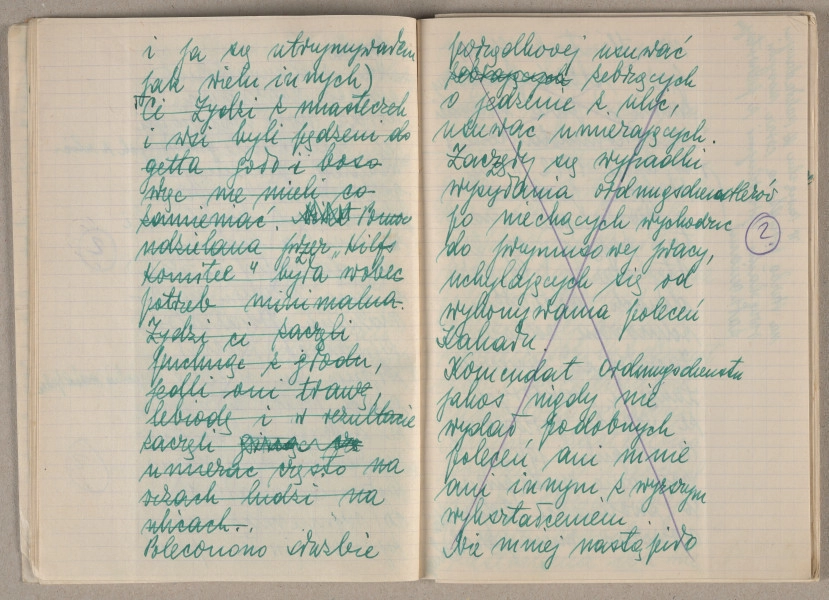 i ja się utrzymywałem
jak wielu innych)
Ci Żydzi z miasteczek
i wsi byli pędzeni do
getta goło i boso
więc nie mieli co
zamieniać. Pomoc
udzielana przez "Hilfs
komitee" była wobec
potrzeb minimalna.
Żydzi ci zaczęli
puchnąć z głodu,
jedli oni trawę,
lebiodę i w rezultacie
zaczęli
umierać często na
oczach ludzi na
ulicach.
Polecono służbie
porządkowej usuwać
żebrzących
o jedzenie z ulic,
usuwać umierających.
Zaczęły się wypadki
wysyłania ordnungsdienstlerów
po niechcących wychodzić
do przymusowej pracy,
uchylających się od
wykonywania poleceń
Kahału.
Komendat ordnungsdienstu
jakoś nigdy nie
wydał podobnych
poleceń ani mnie
ani innym z wyższym
wykształceniem
Nie mniej nastąpiło
?